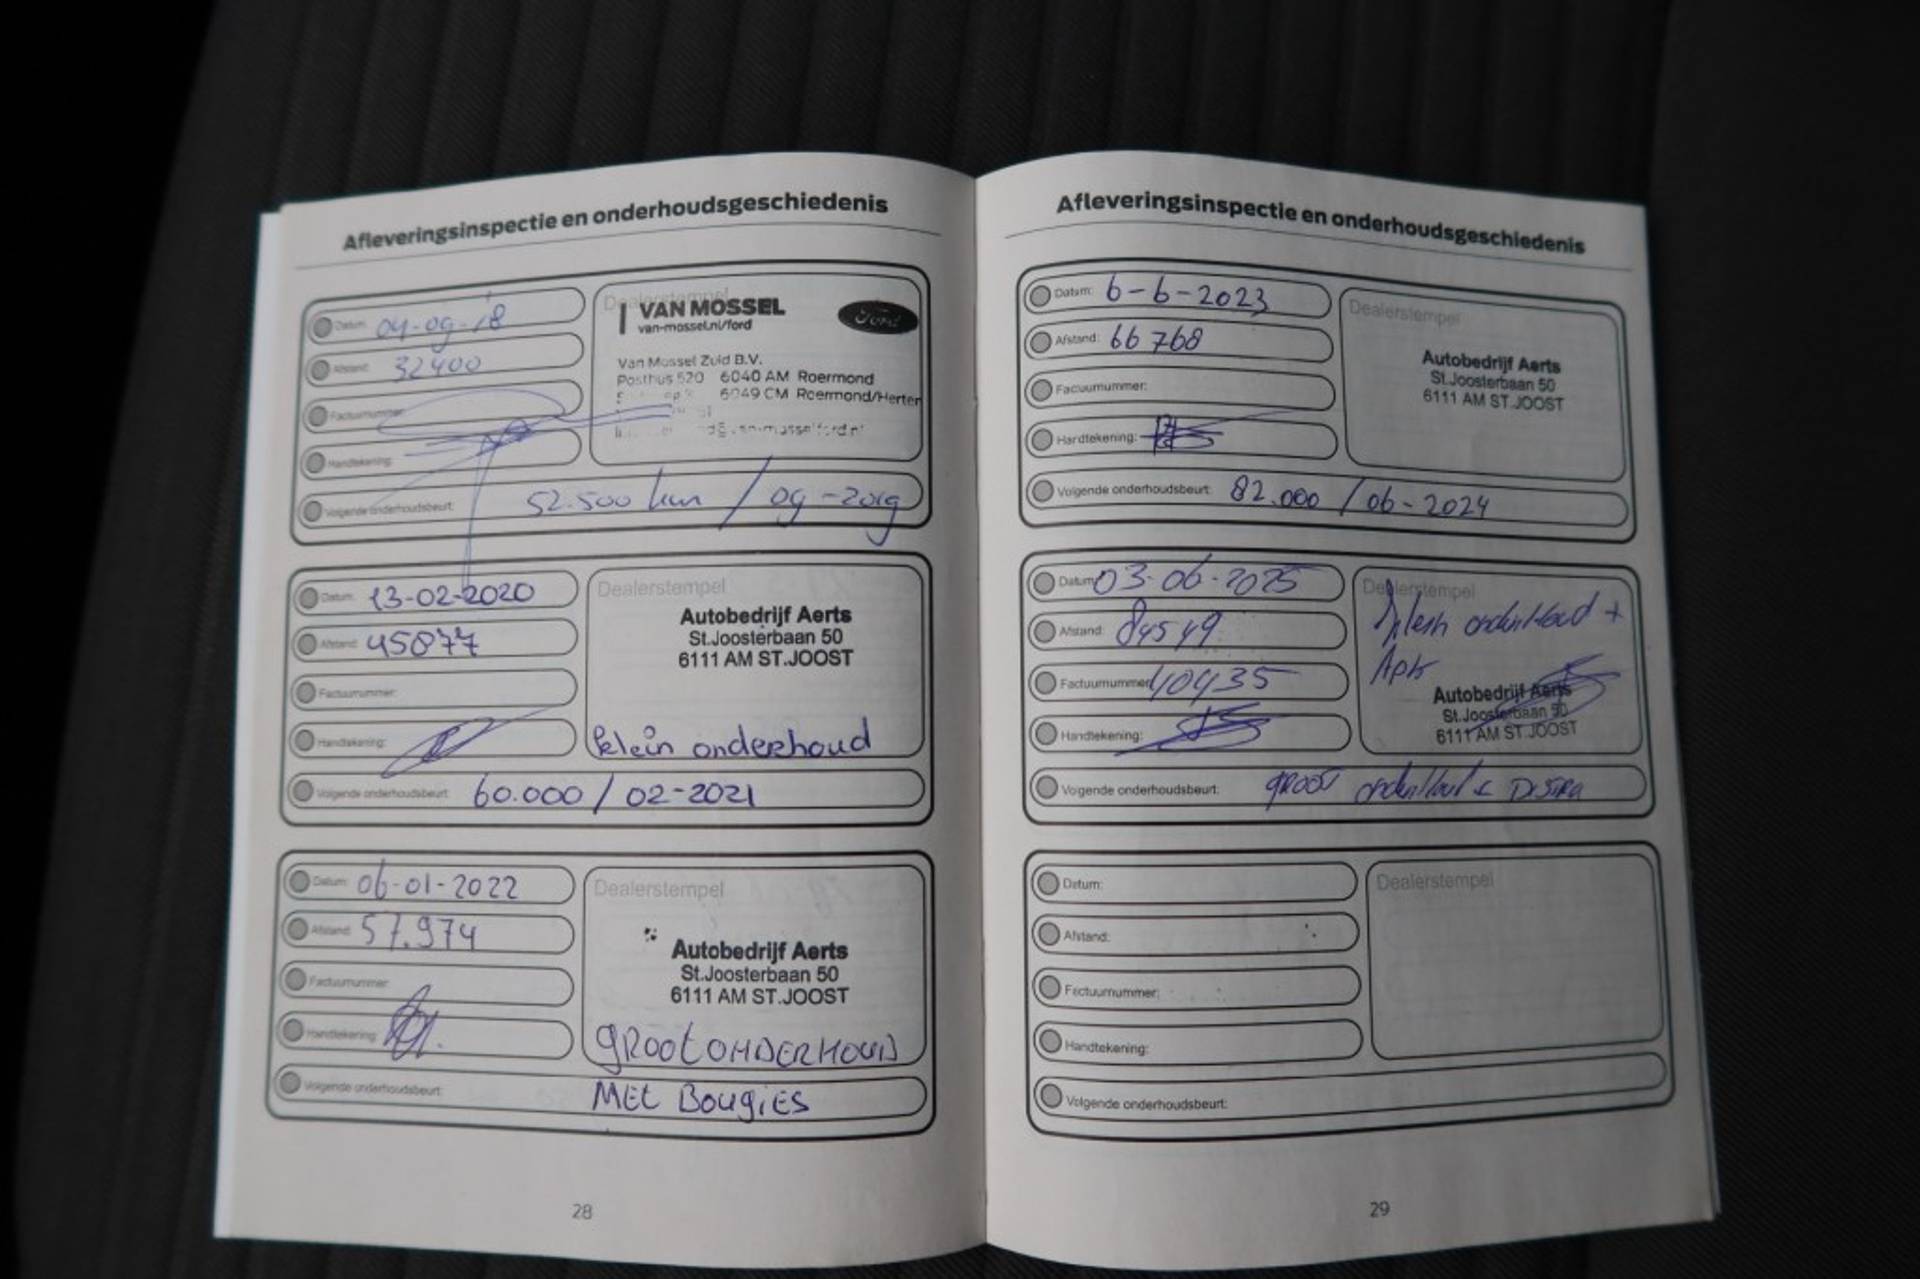 Afleveringsinspectie en onderhoudsgeschiedenis
Datum: 04-09-18
Afstand: 32400
Factuurnummer:
Handtekening:
Volgende onderhoudsbeurt: 52.500 km / 09-2019
Dealerstempel
VAN MOSSEL
van-mossel.nl/ford
Ford
Van Mossel Zuid B.V.
Posthus 520 6040 AM Roermond
6049 CM Roermond/Herten
Datum: 13-02-2020
Afstand: 45877
Factuurnummer:
Handtekening:
Dealerstempel
Autobedrijf Aerts
St.Joosterbaan 50
6111 AM ST.JOOST
klein onderhoud
Volgende onderhoudsbeurt: 60.000 / 02-2021
Datum: 06-01-2022
Afstand: 57.974
Factuurnummer:
Handtekening:
Dealerstempel
Autobedrijf Aerts
St.Joosterbaan 50
6111 AM ST.JOOST
GROOT ONDERHOUD
Volgende onderhoudsbeurt: MET BOUGIES
28
Afleveringsinspectie en onderhoudsgeschiedenis
Datum: 6-6-2023
Afstand: 66768
Factuurnummer:
Handtekening:
Dealerstempel
Autobedrijf Aerts
St.Joosterbaan 50
6111 AM ST.JOOST
Volgende onderhoudsbeurt: 82.000 / 06-2024
Datum: 03-06-2025
Afstand: 84549
Factuurnummer: 40435
Handtekening:
Dealerstempel
onderhoud +
Apk
Autobedrijf Aerts
St.Joosterbaan 50
6111 AM ST.JOOST
Volgende onderhoudsbeurt: groot onderhoud
Datum:
Afstand:
Factuurnummer:
Handtekening:
Dealerstempel
Volgende onderhoudsbeurt:
29